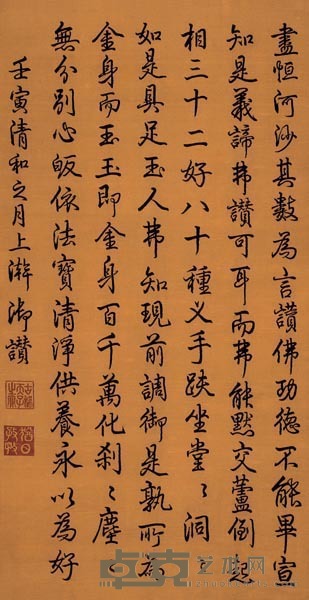 盡恒河沙其數為言讚佛功德不能畢宣
知是義諦弗讚可耳而弗能默交蘆倒起
相三十二好八十種叉手趺坐堂〻洞〻
如是具足玉人弗知現前調御是孰所為
金身而玉玉即金身百千萬化刹〻塵〻
無分別心皈依法寶清淨供養永以為好
壬寅清和之月上澣御讚
卓克艺术网